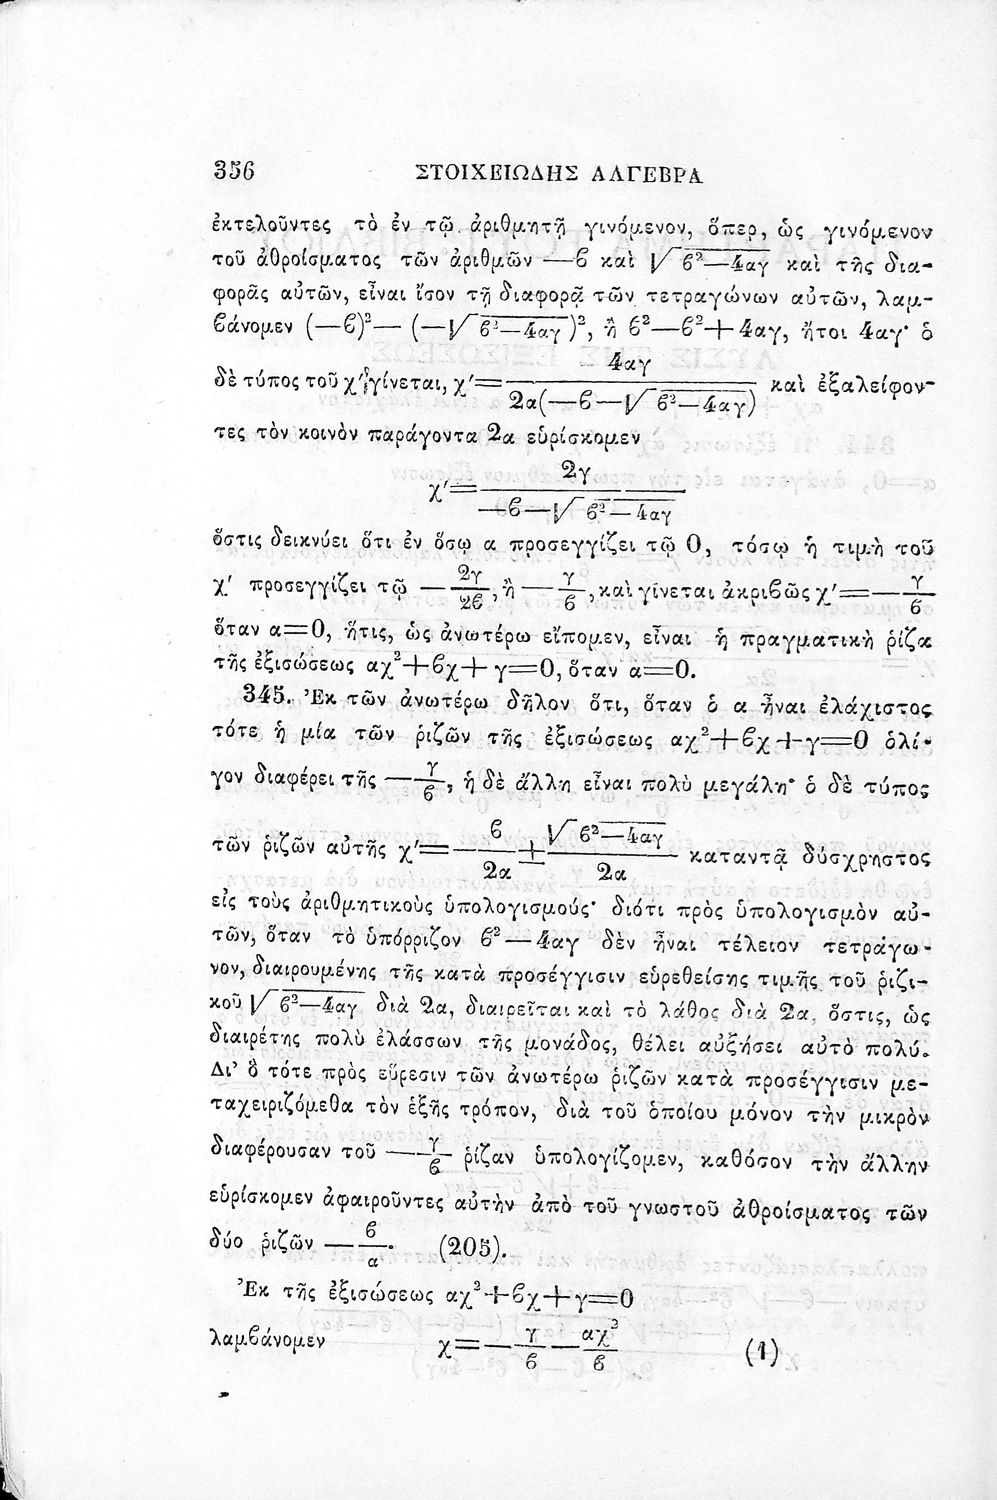 356 ΣΤΟΙΧΕΙΩΔΗΣ ΑΛΓΕΒΡΑ
ἐκτελοῦντες τὸ ἐν τῷ ἀριθμητῇ γινόμενον, ὅπερ, ὡς γινόμενον
τοῦ ἀθροίσματος τῶν ἀριθμῶν —ϐ καὶ √ϐ²—4αγ καὶ τῆς δια-
φορᾶς αὐτῶν, εἶναι ἴσον τῇ διαφορᾷ τῶν τετραγώνων αὐτῶν, λαμ-
ϐάνομεν (—ϐ)²— (—√ϐ²—4αγ)², ἢ ϐ²—ϐ²+4αγ, ἤτοι 4αγ· ὁ
δὲ τύπος τοῦ χ′ γίνεται, χ′= 4αγ / 2α(—ϐ—√ϐ²—4αγ) καὶ ἐξαλείφον-
τες τὸν κοινὸν παράγοντα 2α εὑρίσκομεν
χ′= 2γ / —ϐ—√ϐ²—4αγ
ὅστις δεικνύει ὅτι ἐν ὅσῳ α προσεγγίζει τῷ 0, τόσῳ ἡ τιμὴ τοῦ
χ′ προσεγγίζει τῷ — 2γ/2ϐ, ἢ — γ/ϐ, καὶ γίνεται ἀκριϐῶς χ′=— γ/ϐ
ὅταν α=0, ἥτις, ὡς ἀνωτέρω εἴπομεν, εἶναι ἡ πραγματικὴ ῥίζα
τῆς ἐξισώσεως αχ²+ϐχ+γ=0, ὅταν α=0.
345. Ἐκ τῶν ἀνωτέρω δῆλον ὅτι, ὅταν ὁ α ἦναι ἐλάχιστος
τότε ἡ μία τῶν ῥιζῶν τῆς ἐξισώσεως αχ²+ϐχ+γ=0 ὀλί-
γον διαφέρει τῆς — γ/ϐ, ἡ δὲ ἄλλη εἶναι πολὺ μεγάλη· ὁ δὲ τύπος
τῶν ῥιζῶν αὐτῆς χ′=— ϐ/2α ± √ϐ²—4αγ / 2α καταντᾷ δύσχρηστος
εἰς τοὺς ἀριθμητικοὺς ὑπολογισμούς· διότι πρὸς ὑπολογισμὸν αὐ-
τῶν, ὅταν τὸ ὑπόρριζον ϐ²—4αγ δὲν ἦναι τέλειον τετράγω-
νον, διαιρουμένης τῆς κατὰ προσέγγισιν εὑρεθείσης τιμῆς τοῦ ῥιζι-
κοῦ √ϐ²—4αγ διὰ 2α, διαιρεῖται καὶ τὸ λάθος διὰ 2α, ὅστις, ὡς
διαιρέτης πολὺ ἐλάσσων τῆς μονάδος, θέλει αὐξήσει αὐτὸ πολύ.
Δι’ ὃ τότε πρὸς εὕρεσιν τῶν ἀνωτέρω ῥιζῶν κατὰ προσέγγισιν με-
ταχειριζόμεθα τὸν ἑξῆς τρόπον, διὰ τοῦ ὁποίου μόνον τὴν μικρὸν
διαφέρουσαν τοῦ — γ/ϐ ῥίζαν ὑπολογίζομεν, καθόσον τὴν ἄλλην
εὑρίσκομεν ἀφαιροῦντες αὐτὴν ἀπὸ τοῦ γνωστοῦ ἀθροίσματος τῶν
δύο ῥιζῶν — ϐ/α. (205).
Ἐκ τῆς ἐξισώσεως αχ²+ϐχ+γ=0
λαμϐάνομεν χ=— γ/ϐ — αχ²/ϐ (1)